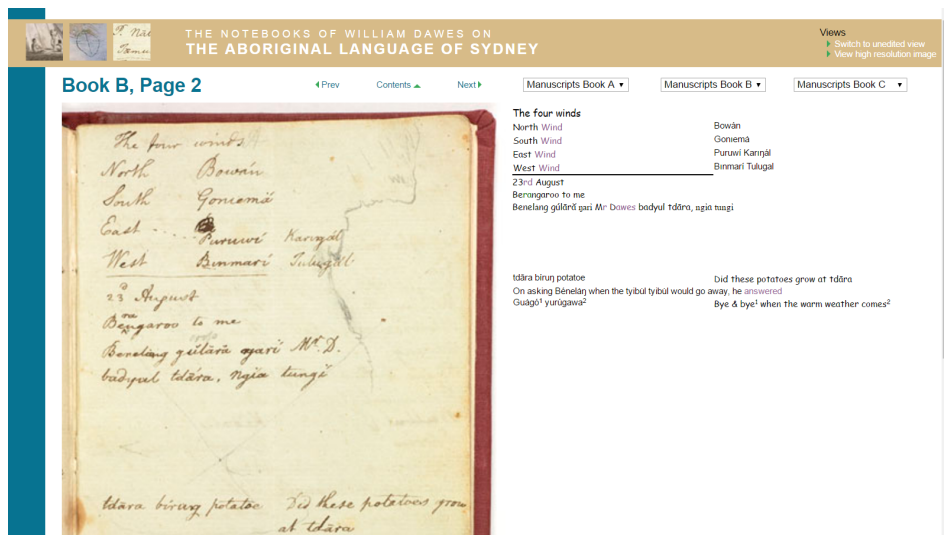 THE NOTEBOOKS OF WILLIAM DAWES ON
THE ABORIGINAL LANGUAGE OF SYDNEY
Views
Switch to unedited view
View high resolution image
Book B, Page 2
Prev Contents Next
Manuscripts Book A
Manuscripts Book B
Manuscripts Book C
The four winds
North Bowán
South Goniemá
East - .... Puruwí Kariŋál
West Binmarí Tulugal
23d August
Berangaroo to me
Benelang gúlārā ŋarí Mr. D.
badyul tdāra, ngia tungi
tdāra biraŋ potatoe Did these potatoes grow
at tdāra
The four winds
North Wind Bowán
South Wind Goniemá
East Wind Puruwí Kariŋál
West Wind Binmarí Tulugal
23rd August
Berangaroo to me
Benelang gúlārā ŋari Mr Dawes badyul tdāra, ngia tungi
tdāra bíruŋ potatoe Did these potatoes grow at tdāra
On asking Béneláŋ when the tyibúl tyibúl would go away, he answered
Guágó¹ yurúgawa² Bye & bye¹ when the warm weather comes²